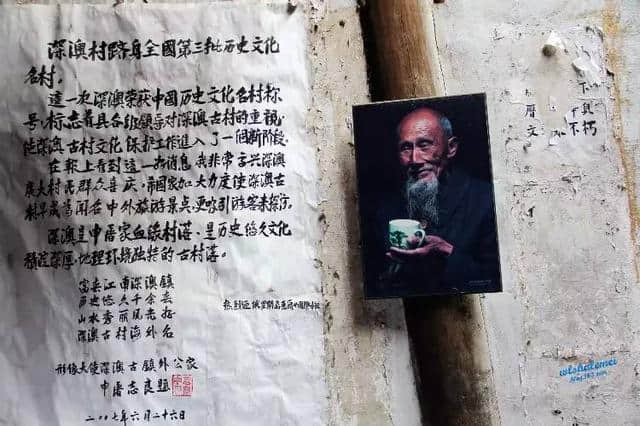 深澳村跻身全國第三批历史文化
名村。
這一次深澳荣获中國历史文化名村称
号，标志着县各级领导对深澳古村的重視
促深澳古村文化保护工作進入了一個新階段。
在報上看到這一好消息，我非常高兴，深澳
廣大村民群众喜庆，希國家加大力度使深澳古
村早成為闻名中外旅游景点，更吸引游客来探访。
深澳是申屠家血缘村落，是历史悠久文化
積淀深厚，地理环境独特的古村落。
富春江南深澳镇
历史悠久千余
山水秀丽风光好
深澳古村海外名
形像大使深澳古鎮外公家
申屠志良題
二〇〇七年六月二十六日